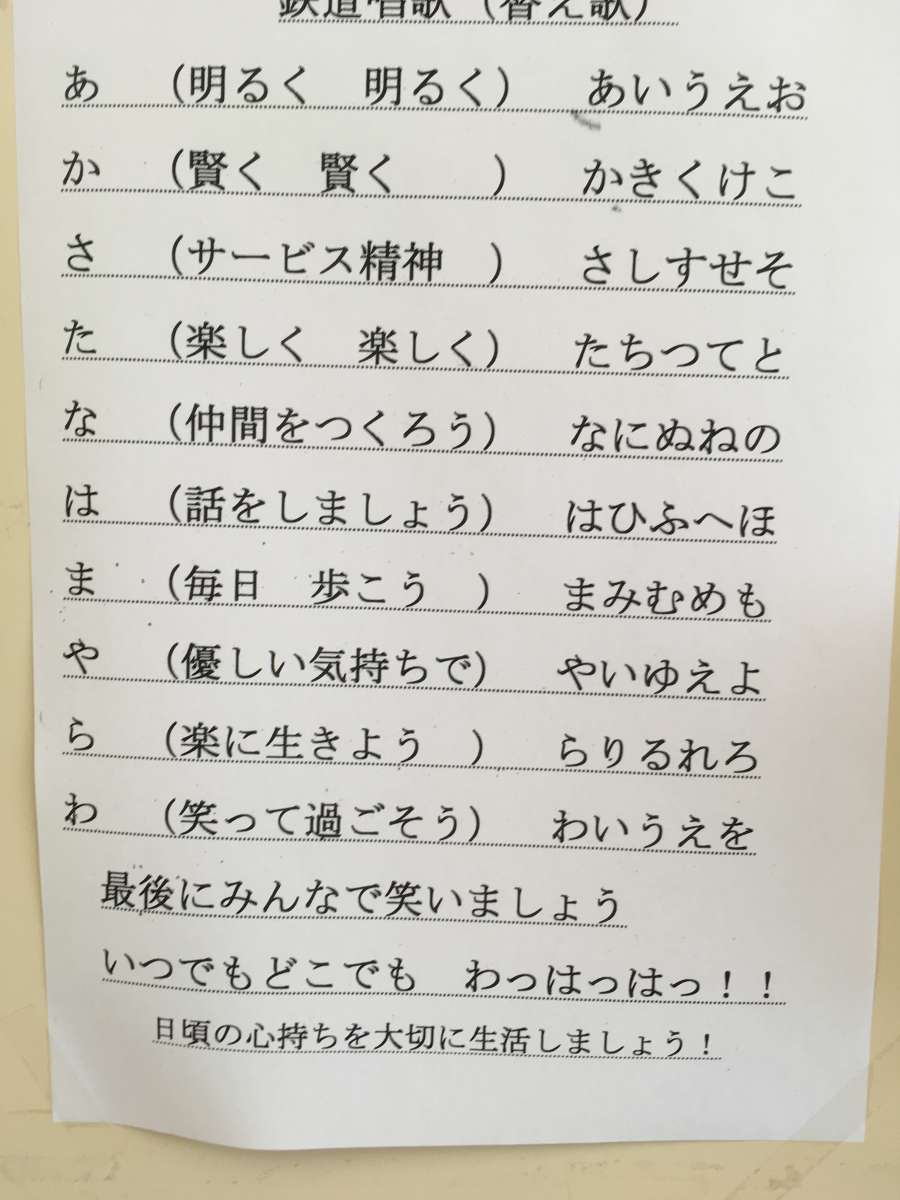 鉄道唱歌（替え歌）
あ （明るく 明るく） あいうえお
か （賢く 賢く ） かきくけこ
さ （サービス精神 ） さしすせそ
た （楽しく 楽しく） たちつてと
な （仲間をつくろう） なにぬねの
は （話をしましょう） はひふへほ
ま （毎日 歩こう ） まみむめも
や （優しい気持ちで） やいゆえよ
ら （楽に生きよう ） らりるれろ
わ （笑って過ごそう） わいうえを
最後にみんなで笑いましょう
いつでもどこでも わっはっはっ！！
日頃の心持ちを大切に生活しましょう！